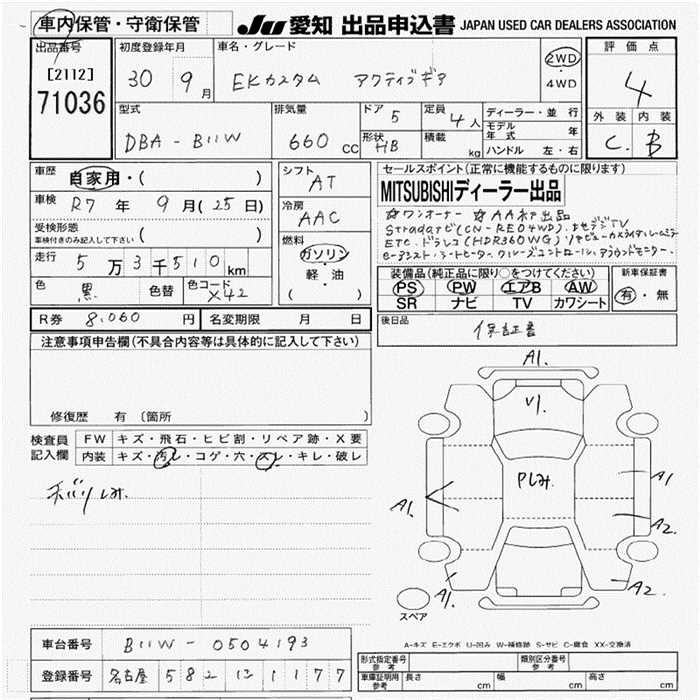 車内保管・守衛保管
JU 愛知 出品申込書 JAPAN USED CAR DEALERS ASSOCIATION
出品番号
[2112]
71036
初度登録年月
30 9月
車名・グレード
EKカスタム アクティブギア
2WD
・
4WD
評価点
4
外装 内装
C. B
型式
DBA-B11W
排気量
660 cc
ドア 5
形状 HB
定員 4人
積載 kg
ディーラー・並行
モデル年式 年
ハンドル 左・右
車歴 自家用・( )
車検 R7年 9月(25日)
受検形態
車検付きのみ記入して下さい ( )
走行 5万3千510km
色 黒 色替 色コード X42
シフト AT
冷房 AAC
燃料
ガソリン・
軽・油
( )
セールスポイント(正常に機能するものに限ります)
MITSUBISHIディーラー出品
☆ワンオーナー ☆AA初出品
Stradaナビ(CN-RE04WD)、フルセグTV
ETC、ドラレコ(HDR360WG)
シートヒーター、クルーズコントロール、アラウンドモニター
装備品(純正品に限り○をつけてください)
PS PW エアB AW
SR ナビ TV カワシート
新車保証書
有・無
R券 8,060円 名変期限 月 日
後日品
保証書
注意事項申告欄(不具合内容等は具体的に記入して下さい)
修復歴 有 (箇所
検査員記入欄
FW キズ・飛石・ヒビ割・リペア跡・X要
内装 キズ・汚レ・コゲ・穴・スレ・キレ・破レ
A1.
U1.
Pしみ.
A1.
A1
A2
A1.
A2.
スペア
A-キズ E-エクボ U-凹み W-補修跡 S-サビ C-腐食 XX-交換済
車台番号 B11W-0504193
登録番号 名古屋 582
1177
形式指定番号
参考
類別区分番号
参考
車庫証明用
参考
長さ cm 幅 cm 高さ cm